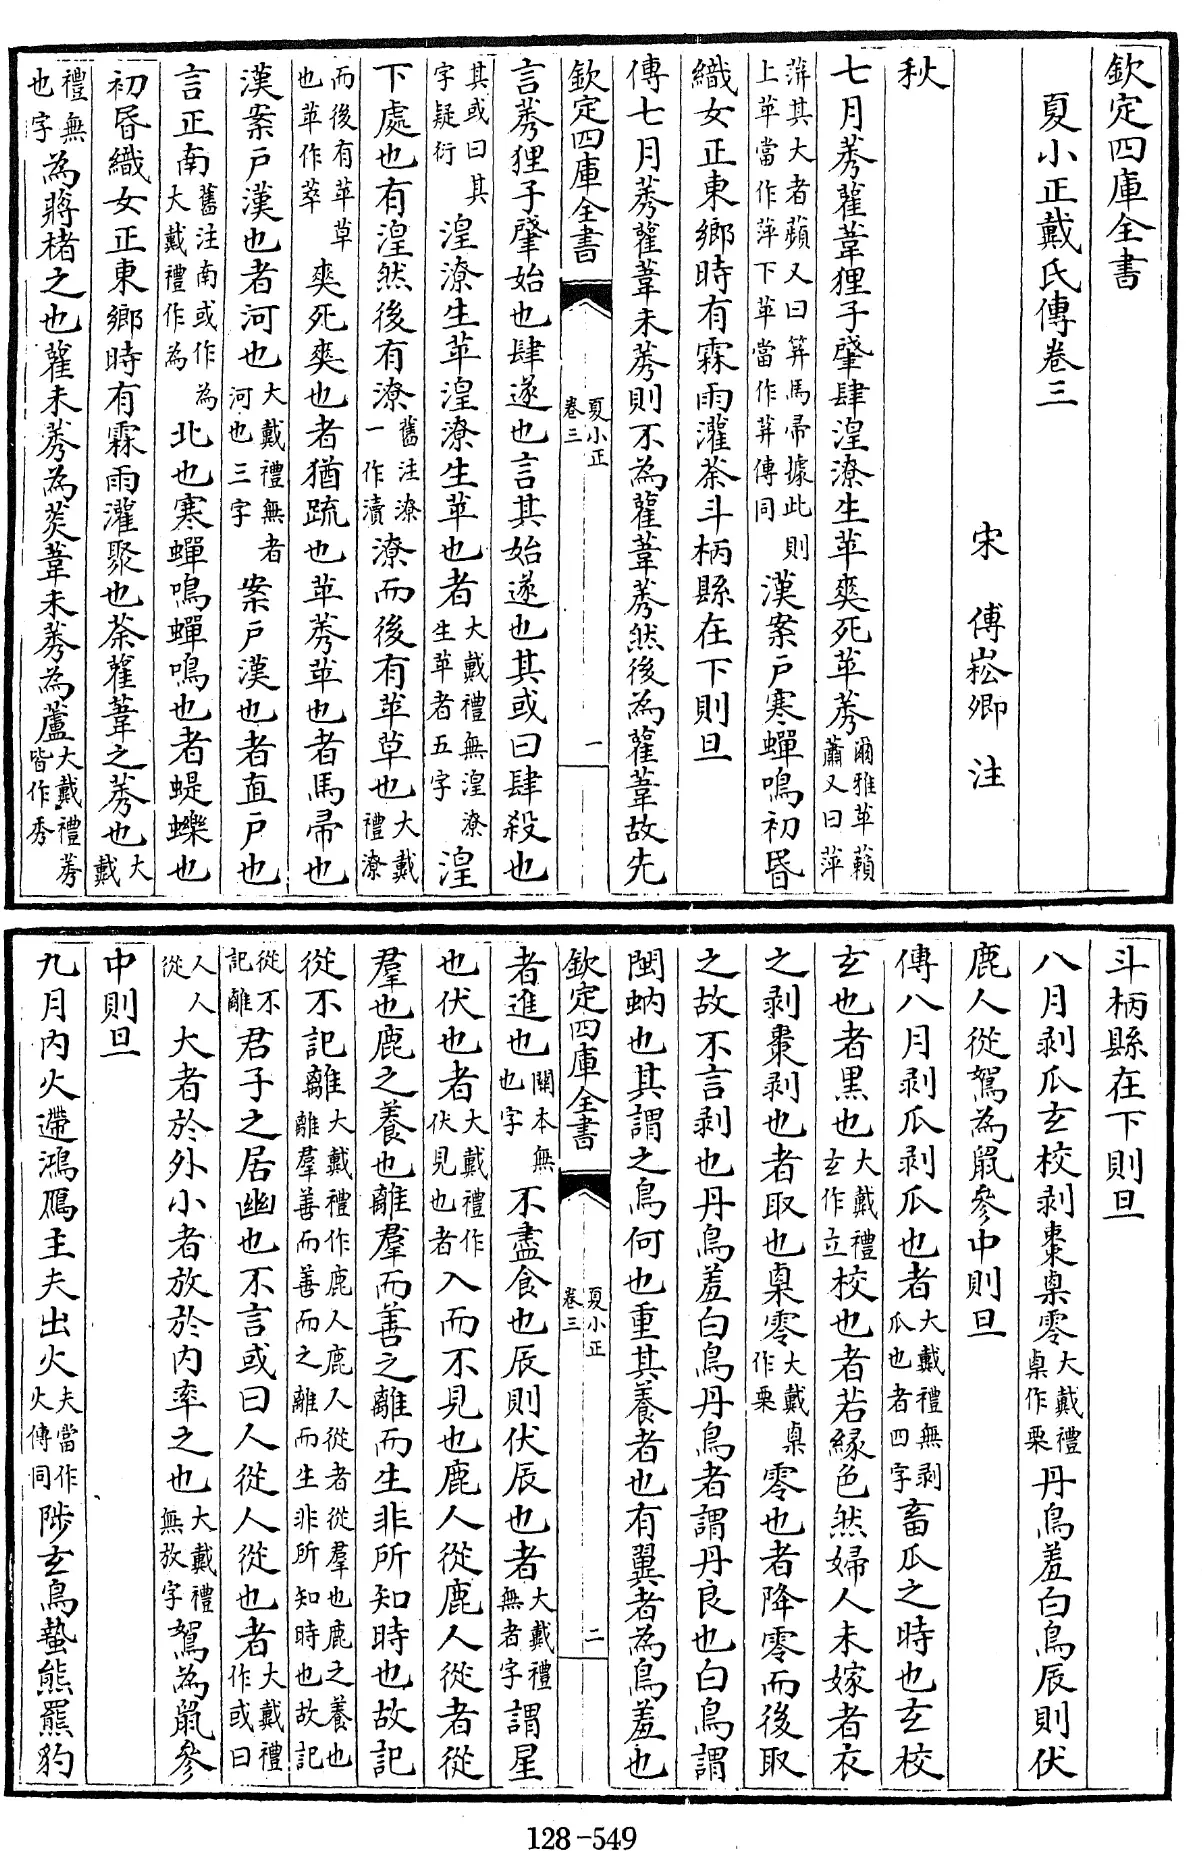 欽定四庫全書
夏小正戴氏傳卷三
宋 傅崧卿 注
秋
七月莠雚葦狸子肇肆湟潦生苹爽死苹莠爾雅苹藾蕭又曰萍
蓱其大者蘋又曰荓馬帚據此則上苹當作萍下苹當作荓傳同漢案戶寒蟬鳴初昏
織女正東鄉時有霖雨灌荼斗柄縣在下則旦
傳七月莠雚葦未莠則不為雚葦莠然後為雚葦故先
欽定四庫全書 夏小正 卷三 一
言莠狸子肇始也肆遂也言其始遂也其或曰肆殺也
其或曰其字疑衍湟潦生苹湟潦生苹也者大戴禮無湟潦生苹者五字湟
下處也有湟然後有潦舊注潦一作瀆潦而後有苹草也大戴禮潦
而後有苹草也苹作萃爽死爽也者猶疏也苹莠苹也者馬帚也
漢案戶漢也者河也大戴禮無者河也三字案戶漢也者直戶也
言正南舊注南或作為大戴禮作為北也寒蟬鳴蟬鳴也者蝭蠑也
初昏織女正東鄉時有霖雨灌聚也荼雚葦之莠也大戴
禮無也字為蔣楮之也雚未莠為菼葦未莠為蘆大戴禮莠皆作秀
斗柄縣在下則旦
八月剥瓜玄校剥棗㮚零大戴禮㮚作栗丹鳥羞白鳥辰則伏
鹿人從鴽為鼠參中則旦
傳八月剥瓜剥瓜也者大戴禮無剥瓜也者四字畜瓜之時也玄校
玄也者黑也大戴禮玄作立校也者若緑色然婦人未嫁者衣
之剥棗剥也者取也㮚零大戴㮚作栗零也者降零而後取
之故不言剥也丹鳥羞白鳥丹鳥者謂丹良也白鳥謂
閩蚋也其謂之鳥何也重其養者也有翼者為鳥羞也
欽定四庫全書 夏小正 卷三 二
者進也關本無也字不盡食也辰則伏辰也者大戴禮無者字謂星
也伏也者大戴禮作伏見也者入而不見也鹿人從鹿人從者從
羣也鹿之養也離羣而善之離而生非所知時也故記
從不記離大戴禮作鹿人鹿人從者從羣也鹿之養也離羣善而善而之離而生非所知時也故記
從不記離君子之居幽也不言或曰人從人從也者大戴禮作或曰
人人從大者於外小者放於内率之也大戴禮無放字鴽為鼠參
中則旦
九月内火遰鴻鴈主夫出火夫當作火傳同陟玄鳥蟄熊羆豹
128-549